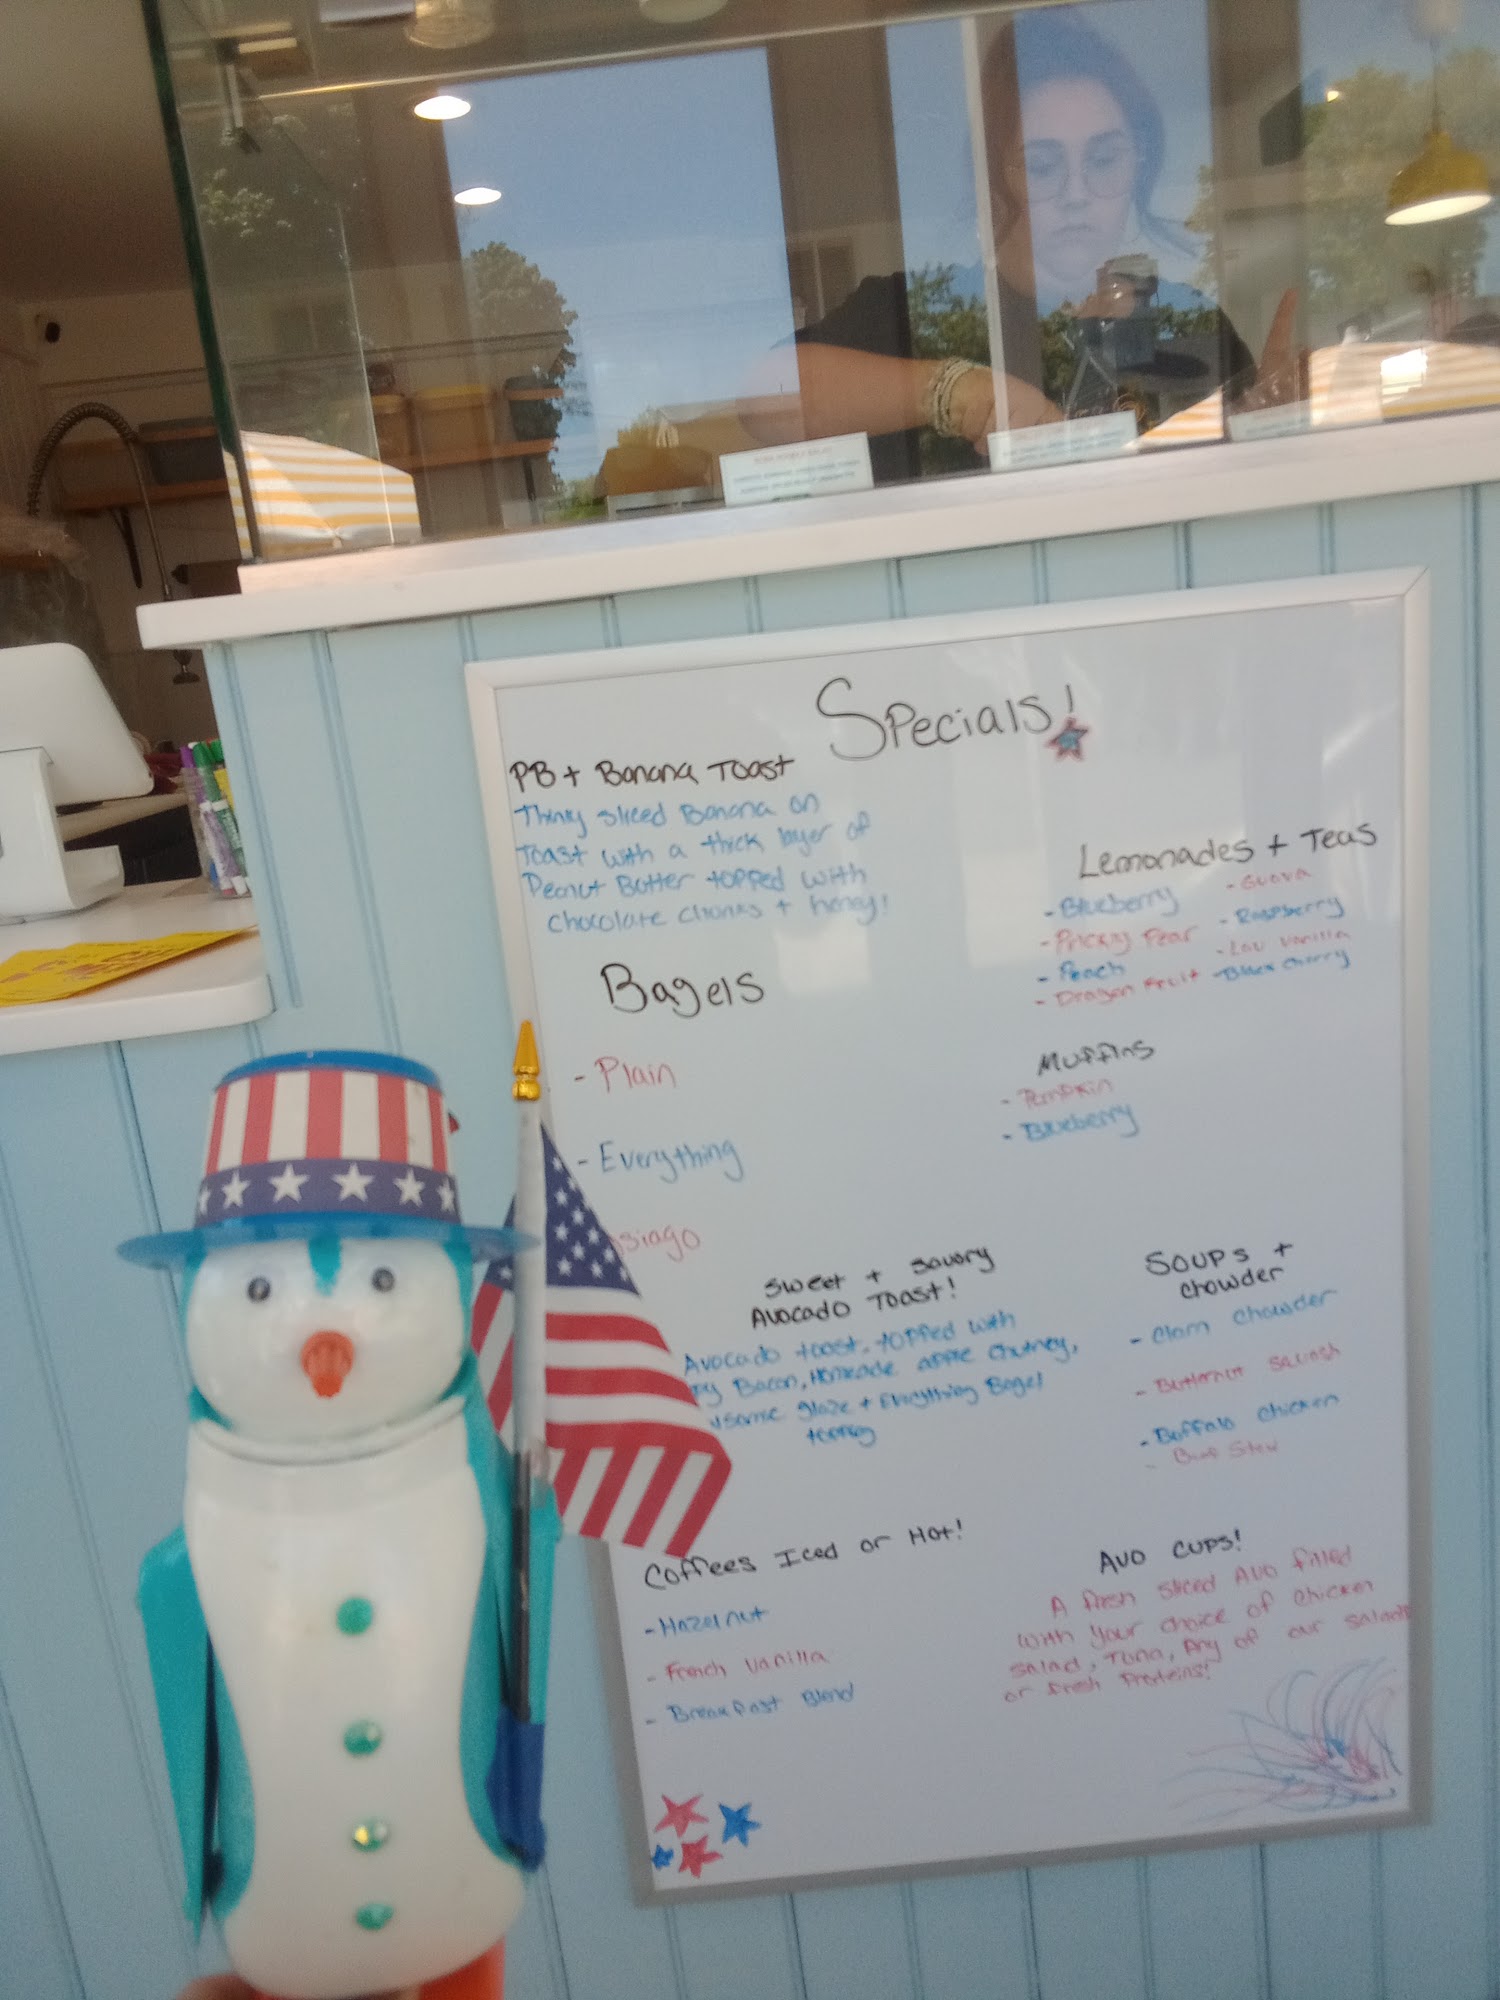 Specials!
PB + Banana Toast
Thinly sliced Banana on
Toast with a thick layer of
Peanut Butter topped with
chocolate chunks + honey!
Lemonades + Teas
- Blueberry
- Prickly Pear
- Peach
- Dragon Fruit
- Guava
- Raspberry
- Lav Vanilla
- Black Cherry
Bagels
- Plain
- Everything
siago
Muffins
- Pumpkin
- Blueberry
Sweet + Savory
Avocado Toast!
Avocado toast, topped with
Bacon, Homemade apple chutney,
glaze + Everything Bagel
Soups +
chowder
- Clam chowder
- Butternut Squash
- Buffalo chicken
- Beef Stew
Coffees Iced or Hot!
- Hazelnut
- French Vanilla
- Breakfast Blend
Avo Cups!
A fresh sliced Avo filled
with your choice of chicken
salad, Tuna, Any of our salads
or fresh Proteins!